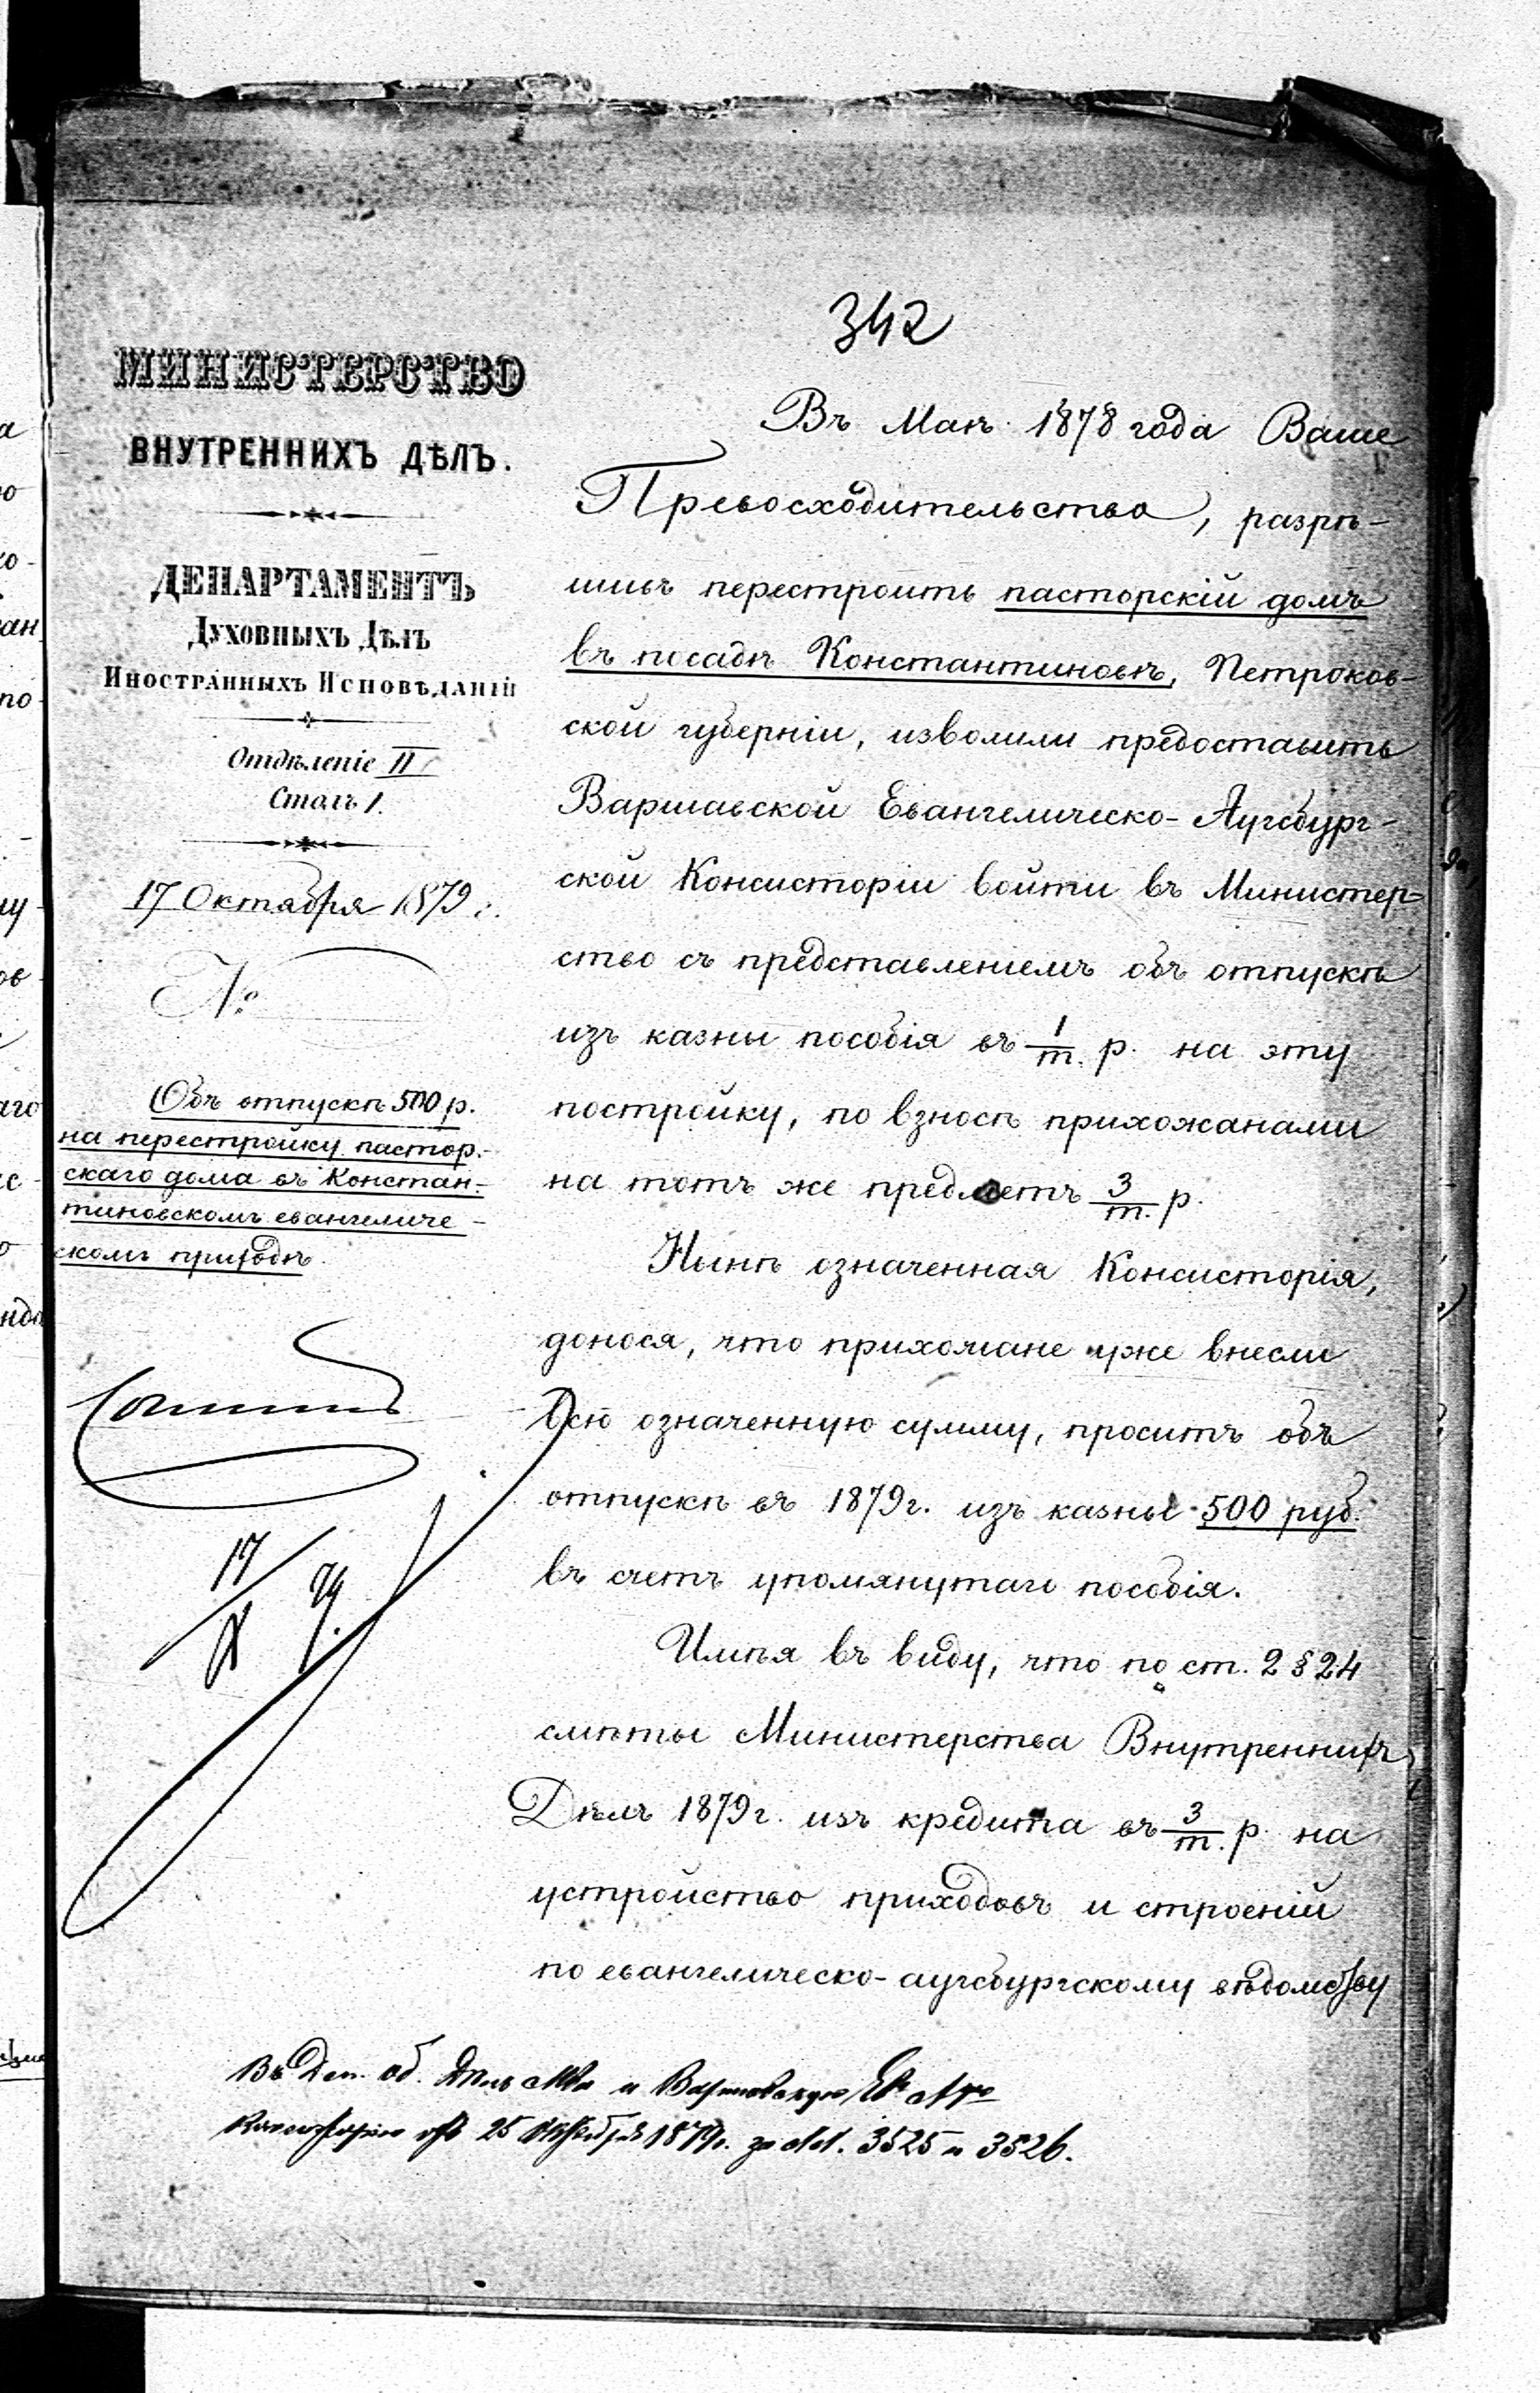 342
МИНИСТЕРСТВО
ВНУТРЕННИХЪ ДѢЛЪ.
ДЕПАРТАМЕНТЪ
Духовныхъ Дѣлъ
Иностранныхъ Исповѣданій
Отдѣленіе II
Столъ 1.
17 Октября 1879 г.
№
Объ отпускѣ 500 р.
на перестройку пастор-
скаго дома въ Констан-
тиновскомъ евангеличе-
скомъ приходѣ.
17/X 79.
Въ Маѣ 1878 года Ваше
Превосходительство, разрѣ-
шивъ перестроить пасторскій домъ
въ посадѣ Константиновѣ, Петроков-
ской губерніи, изволили предоставить
Варшавской Евангелическо-Аугсбург-
ской Консисторіи войти въ Министер-
ство съ представленіемъ объ отпускѣ
изъ казны пособія въ 1/т. р. на эту
постройку, по взносѣ прихожанами
на тотъ же предметъ 3/т. р.
Нынѣ означенная Консисторія,
донося, что прихожане уже внесли
всю означенную сумму, проситъ объ
отпускѣ въ 1879 г. изъ казны 500 руб.
въ счетъ упомянутаго пособія.
Имѣя въ виду, что по ст. 2 § 24
смѣты Министерства Внутреннихъ
Дѣлъ 1879 г. изъ кредита въ 3/т. р. на
устройство приходовъ и строеній
по евангелическо-аугсбургскому вѣдомству
Въ Деп. об. Дѣлъ и Варшавскую Ев.
Консисторію отъ 25 Октября 1879 г. за №№. 3525 и 3526.